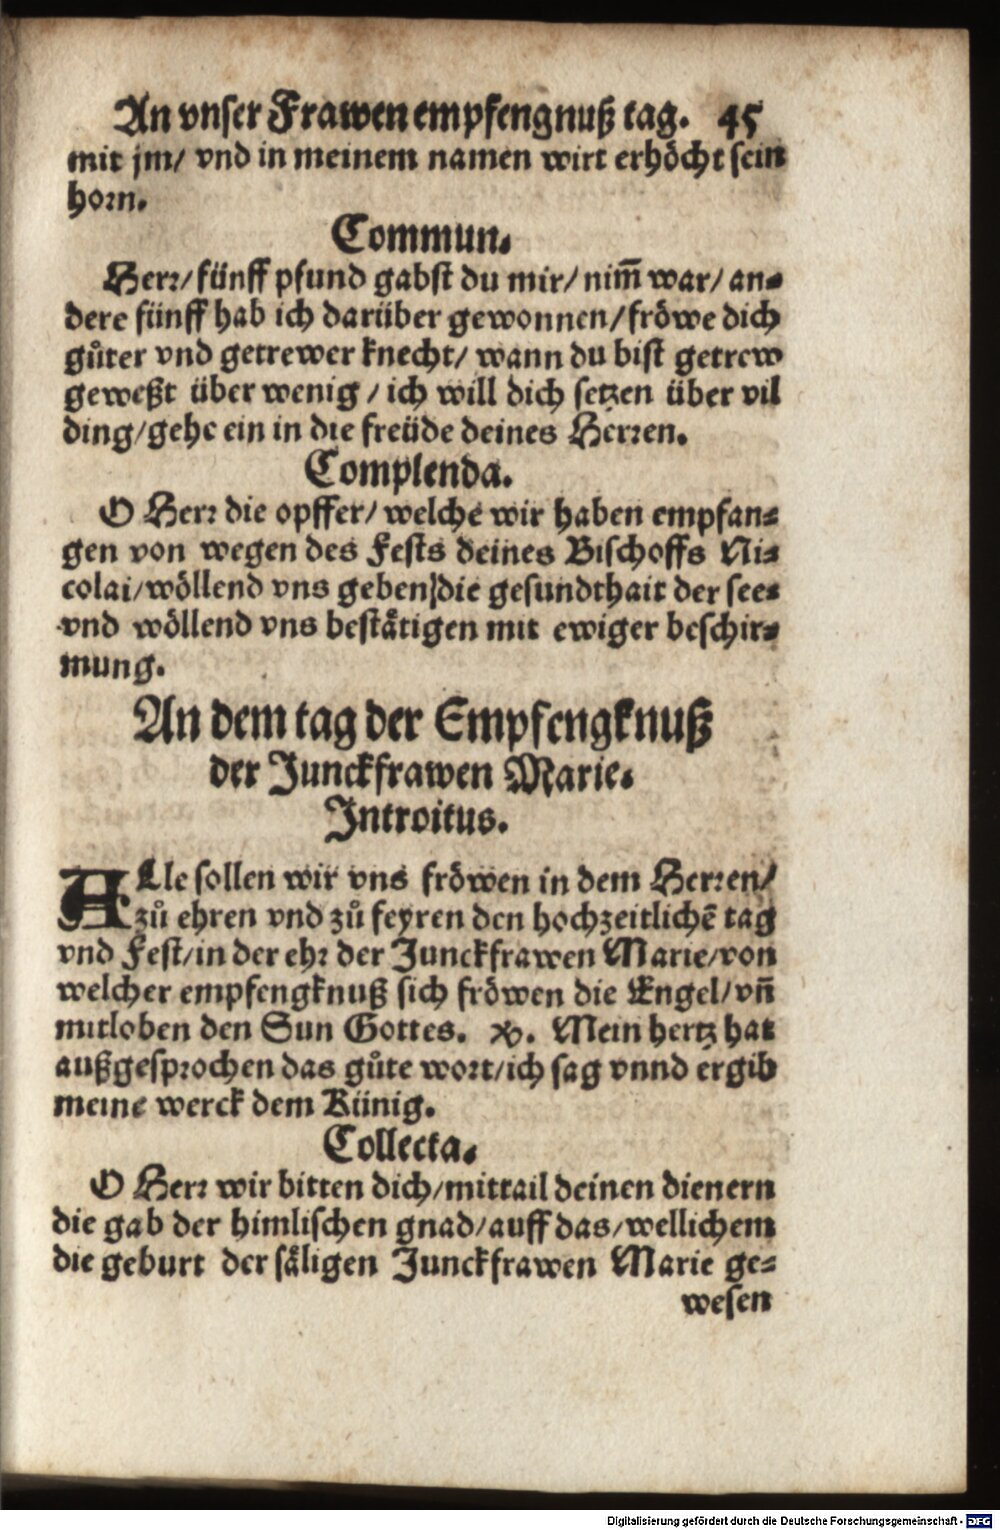 An vnser Frawen empfengnuß tag. 45
mit jm/ vnd in meinem namen wirt erhöcht sein
horn.
Commun.
Herr/ fünff pfund gabst du mir/ nim̄ war/ an-
dere fünff hab ich darüber gewonnen/ fröwe dich
gůter vnd getrewer knecht/ wann du bist getrew
geweßt über wenig / ich will dich setzen über vil
ding/ gehe ein in die freüde deines Herren.
Complenda.
O Herr die opffer/ welche wir haben empfan-
gen von wegen des Fests deines Bischoffs Ni-
colai/ wöllend vns geben/ die gesundthait der see-
vnd wöllend vns bestätigen mit ewiger beschir-
mung.
An dem tag der Empfengknuß
der Junckfrawen Marie.
Introitus.
ALle sollen wir vns fröwen in dem Herren/
zů ehren vnd zů feyren den hochzeitlichē tag
vnd Fest/ in der ehr der Junckfrawen Marie/ von
welcher empfengknuß sich fröwen die Engel/ vn̄
mitloben den Sun Gottes. ℣. Mein hertz hat
außgesprochen das gůte wort/ ich sag vnnd ergib
meine werck dem Künig.
Collecta.
O Herr wir bitten dich/ mittail deinen dienern
die gab der himlischen gnad/ auff das/ wellichem
die geburt der säligen Junckfrawen Marie ge-
wesen
Digitalisierung gefördert durch die Deutsche Forschungsgemeinschaft - DFG